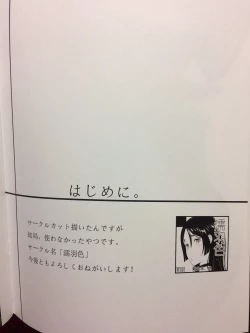 はじめに。
サークルカット描いたんですが
結局、使わなかったやつです。
サークル名「濡羽色」
今後ともよろしくおねがいします!